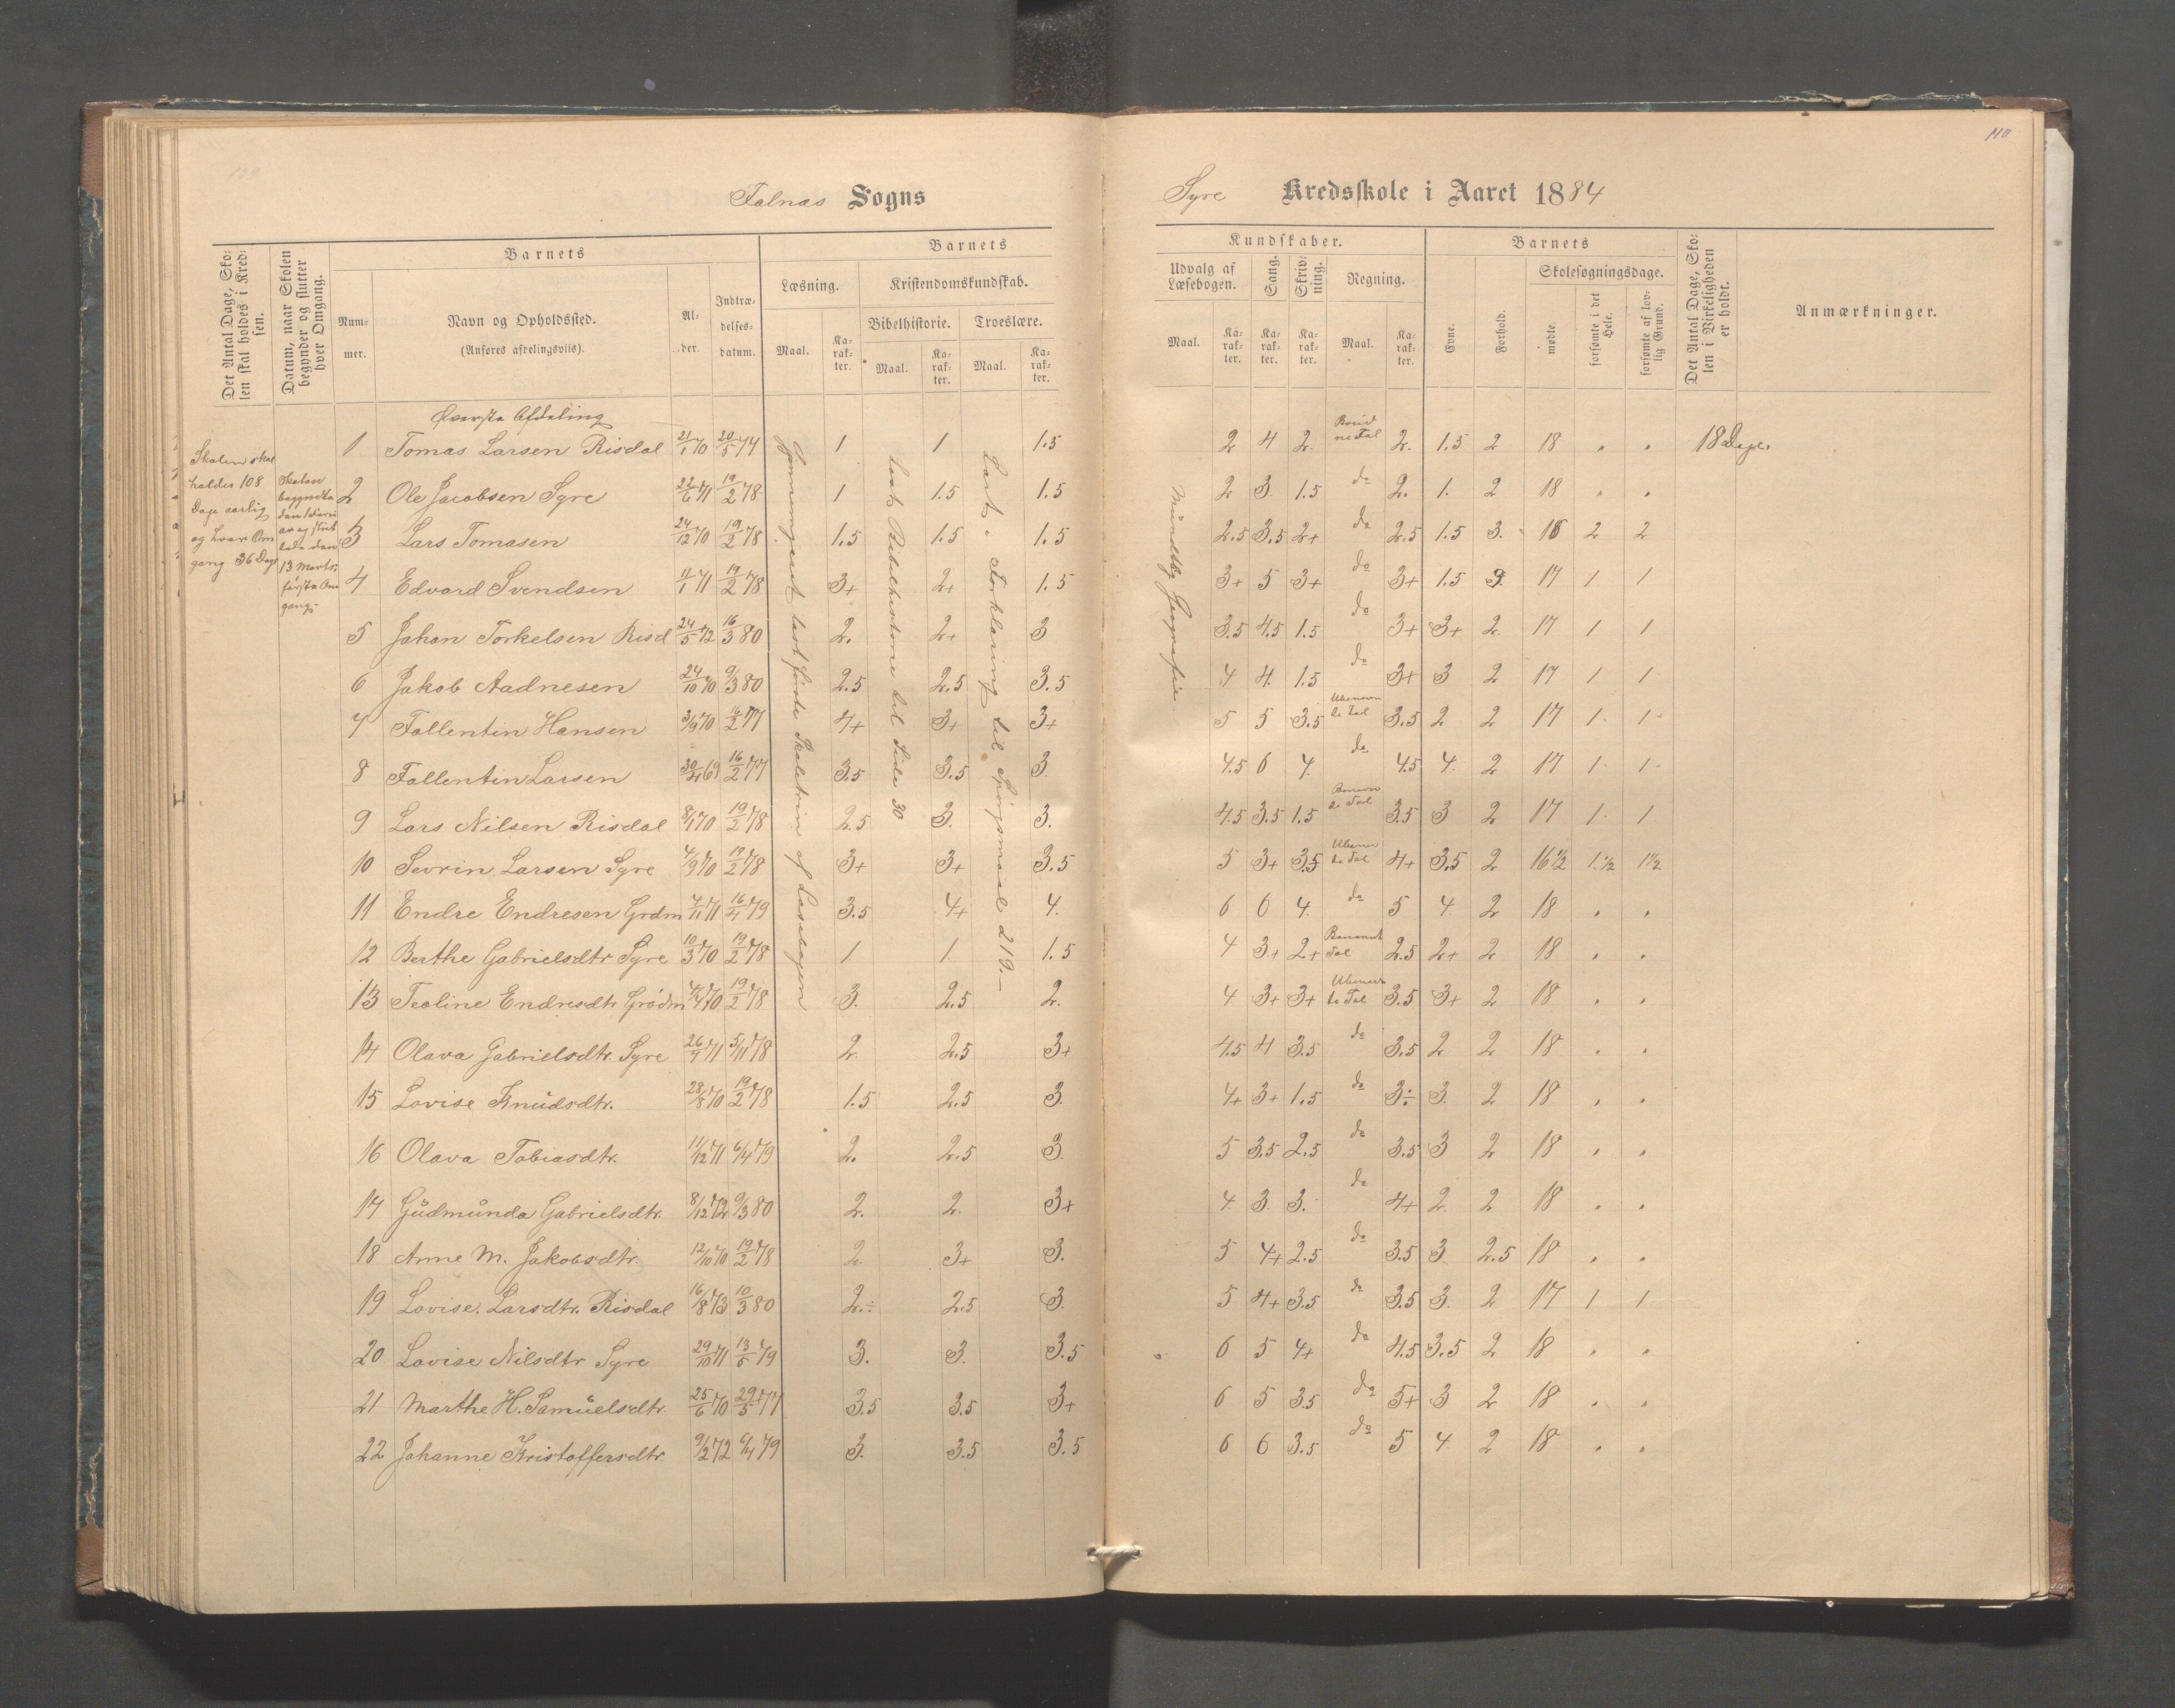 110
Falnæs Sogns
Syre Kredsskole i Aaret 1884
Det Antal Dage, Sko-
len skal holdes i Kred-
sen.
Datum, naar Skolen
begynder og slutter
hver Omgang.
Barnets
Num-
mer.
Navn og Opholdssted.
(Anføres afdelingsviis).
Al-
der.
Indtræ-
delses-
datum.
Barnets
Læsning.
Maal.
Ka-
rak-
ter.
Kristendomskundskab.
Bibelhistorie.
Maal.
Ka-
rak-
ter.
Troeslære.
Maal.
Ka-
rak-
ter.
Kundskaber.
Udvalg af
Læsebogen.
Maal.
Ka-
rak-
ter.
Sang.
Ka-
rak-
ter.
Skriv-
ning.
Ka-
rak-
ter.
Regning.
Maal.
Ka-
rak-
ter.
Barnets
Evne.
Forhold.
Skolesøgningsdage.
mødte.
forsømte i det
Hele.
forsømte af lov-
lig Grund.
Det Antal Dage, Sko-
len i Virkeligheden
er holdt.
Anmærkninger.
Skolen skal
holdes 108
Dage aarlig
og hver Om
gang 36 Dage
Skolen
begyndte
13 Marts
første Om
gang
Øverste Afdeling
Gjennemgaaet
Læst Bibelhistorie til Side 30
Læst i Forklaring til Spørgsmaal 219.
Geografie
1 Tomas Larsen Risdal 21/1 70 20/5 74 1 1 1.5 2 4 2 2. 1.5 2 18 " " 18 Dage.
2 Ole Jacobsen Syre 22/6 71 19/2 78 1 1.5 1.5 2 3 1.5 do 2. 1. 2 18 " "
3 Lars Tomasen 24/12 70 19/2 78 1.5 1.5 1.5 2.5 3.5 2+ do 2.5 1.5 3. 16 2 2
4 Edvard Svendsen 11/1 71 19/2 78 3+ 2+ 1.5 3+ 5 3+ do 3+ 1.5 17 1 1
5 Johan Torkelsen Risd 24/5 72 16/3 80 2. 2+ 3 3.5 4.5 1.5 do 3+ 3+ 2 17 1 1
6 Jakob Aadnesen 24/10 70 9/3 80 2.5 2.5 3.5 4 4 1.5 do 3+ 3 2 17 1 1
7 Fallentin Hansen 3/9 70 16/2 77 4+ 3+ 3+ 5 5 3.5 3.5 2 2 17 1 1
8 Fallentin Larsen 30/4 69 16/2 77 3.5 3.5 3 4.5 6 4. do 4.5 4. 2 17 1 1
9 Lars Nilsen Risdal 8/1 70 19/2 78 2.5 3. 3. 4.5 3.5 1.5 3.5 3 2 17 1 1
10 Sevrin Larsen Syre 4/9 70 19/2 78 3+ 3+ 3.5 5 3+ 3.5 4+ 3.5 2 16 1/2 1.1/2 1 1/2
11 Endre Endresen Grdm 4/11 71 16/4 79 3.5 4+ 4. 6 6 4. do 5 4 2 18 " "
12 Berthe Gabrielsdtr Syre 10/3 70 19/2 78 1. 1. 1.5 4 3+ 2+ 2.5 2+ 2 18 " "
13 Teoline Endresdtr Grødm 4/4 70 19/2 78 3. 2.5 2. 4 3+ 3+ 3.5 3+ 2 18 " "
14 Olava Gabrielsdtr. Syre 26/9 71 5/11 78 2. 2.5 3+ 4.5 4 3.5 do 3.5 2 2 18 " "
15 Lovise Knudsdtr. 28/8 70 19/2 78 1.5 2.5 3. 4+ 3+ 1.5 do 3÷ 3. 2 18 " "
16 Olava Tobiasdtr. 11/12 71 6/4 79 2. 2.5 3. 5 3.5 2.5 do 3.5 3 2 18 " "
17 Gudmunda Gabrielsdtr. 8/12 72 9/3 80 2. 2. 3+ 4. 3. 3. do 4+ 2 2 18 " "
18 Anne M. Jakobsdtr. 12/10 70 19/2 78 2. 3+ 3. 5 4+ 2.5 do 3.5 3 2.5 18 " "
19 Lovise. Larsdtr. Risdal 16/8 73 10/3 80 2.÷ 2.5 3. 5 4+ 3.5 do 3.5 3. 2 17 1 1
20 Lovise Nilsdtr Syre 29/10 71 13/5 79 3. 3. 3.5 6 5 4+ do 4.5 3.5 2 18 " "
21 Marthe H. Samuelsdtr 25/6 70 29/5 77 3.5 3.5 3+ 6 5 3.5 do 5+ 3 2 18 " "
22 Johanne Kristoffersdtr. 9/2 72 6/4 79 3. 3.5 3.5 6 6 3.5 do 5 4 2 18 " "